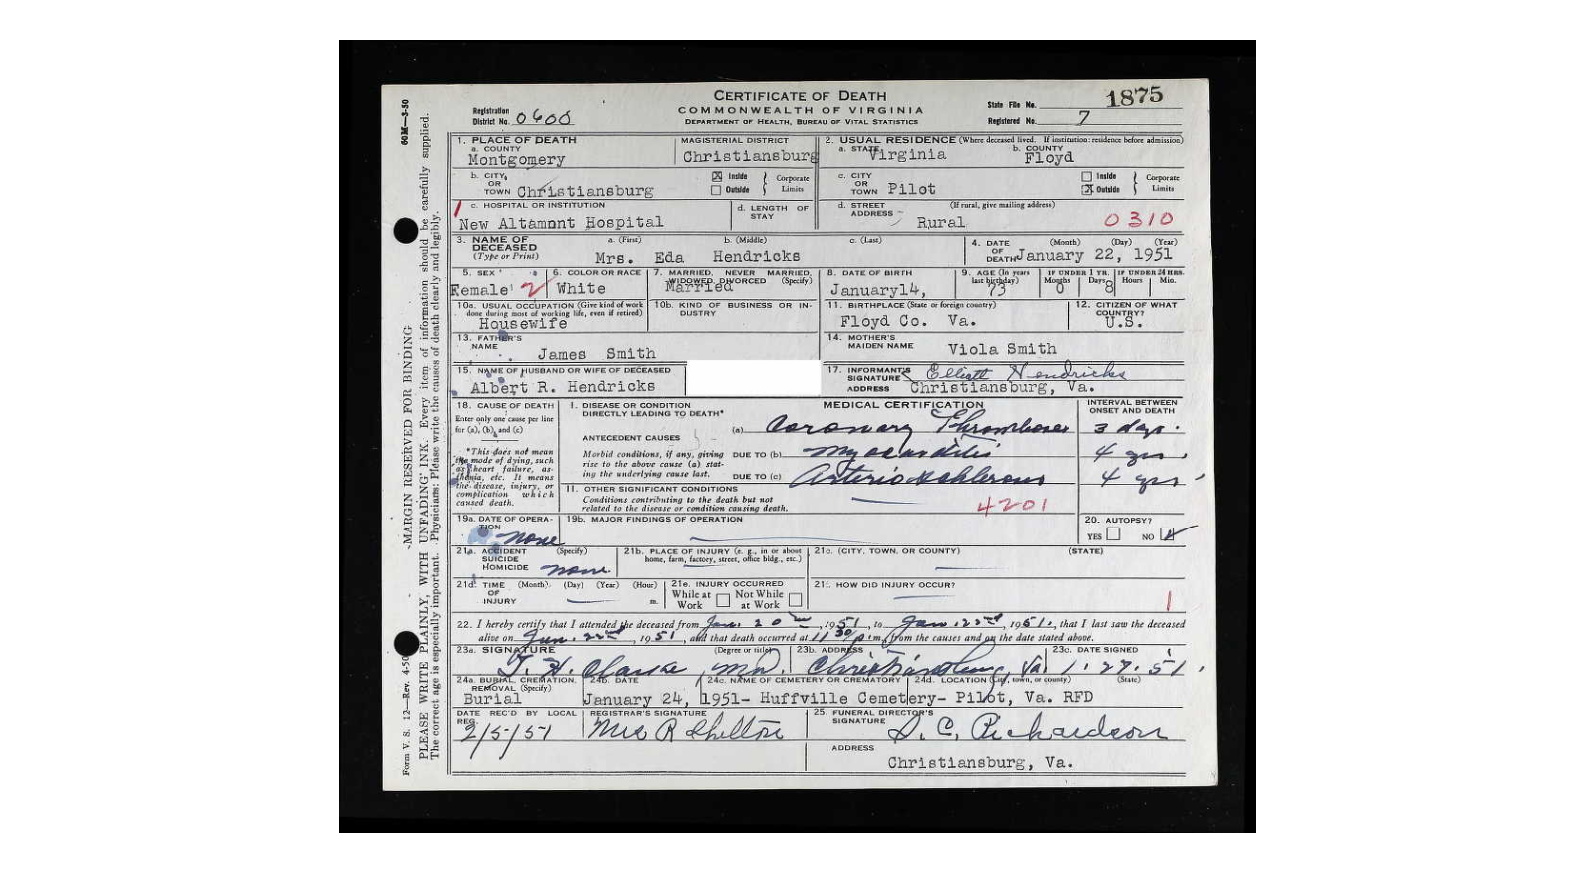 1875
CERTIFICATE OF DEATH
COMMONWEALTH OF VIRGINIA
DEPARTMENT OF HEALTH, BUREAU OF VITAL STATISTICS
Registration District No. 0600
State File No.
Registered No. 7
1. PLACE OF DEATH
a. COUNTY Montgomery
MAGISTERIAL DISTRICT Christiansburg
2. USUAL RESIDENCE (Where deceased lived. If institution: residence before admission)
a. STATE Virginia
b. COUNTY Floyd
b. CITY OR TOWN Christiansburg
☒ Inside ☐ Outside } Corporate Limits
c. CITY OR TOWN Pilot
☐ Inside ☒ Outside } Corporate Limits
c. HOSPITAL OR INSTITUTION New Altamont Hospital
d. LENGTH OF STAY
d. STREET ADDRESS (If rural, give mailing address) Rural 0310
3. NAME OF DECEASED (Type or Print)
a. (First) b. (Middle) c. (Last)
Mrs. Eda Hendricks
4. DATE OF DEATH (Month) (Day) (Year) January 22, 1951
5. SEX Female 2
6. COLOR OR RACE White
7. MARRIED, NEVER MARRIED, WIDOWED, DIVORCED (Specify) Married
8. DATE OF BIRTH January14,
9. AGE (In years last birthday) 73
IF UNDER 1 YR. Months 0 Days 8
IF UNDER 24 HRS. Hours Min.
10a. USUAL OCCUPATION (Give kind of work done during most of working life, even if retired) Housewife
10b. KIND OF BUSINESS OR INDUSTRY
11. BIRTHPLACE (State or foreign country) Floyd Co. Va.
12. CITIZEN OF WHAT COUNTRY? U.S.
13. FATHER'S NAME James Smith
14. MOTHER'S MAIDEN NAME Viola Smith
15. NAME OF HUSBAND OR WIFE OF DECEASED Albert R. Hendricks
17. INFORMANT'S SIGNATURE Elliott Hendricks
ADDRESS Christiansburg, Va.
18. CAUSE OF DEATH
Enter only one cause per line for (a), (b), and (c)
*This does not mean the mode of dying, such as heart failure, asthenia, etc. It means the disease, injury, or complication which caused death.
MEDICAL CERTIFICATION
INTERVAL BETWEEN ONSET AND DEATH
I. DISEASE OR CONDITION DIRECTLY LEADING TO DEATH*
(a) Coronary Thrombosis 3 days.
ANTECEDENT CAUSES
Morbid conditions, if any, giving rise to the above cause (a) stating the underlying cause last.
DUE TO (b) Myocarditis 4 yrs.
DUE TO (c) 4 yrs.
II. OTHER SIGNIFICANT CONDITIONS
Conditions contributing to the death but not related to the disease or condition causing death.
4201
19a. DATE OF OPERATION none
19b. MAJOR FINDINGS OF OPERATION
20. AUTOPSY? YES ☐ NO
21a. ACCIDENT SUICIDE HOMICIDE (Specify) none
21b. PLACE OF INJURY (e. g., in or about home, farm, factory, street, office bldg., etc.)
21c. (CITY, TOWN, OR COUNTY) (STATE)
21d. TIME OF INJURY (Month) (Day) (Year) (Hour) m.
21e. INJURY OCCURRED While at Work ☐ Not While at Work ☐
21f. HOW DID INJURY OCCUR?
1
22. I hereby certify that I attended the deceased from Jan. 20, 1951, to Jan. 22nd, 1951, that I last saw the deceased
alive on Jan. 22nd, 1951, and that death occurred at 11:30 p.m., from the causes and on the date stated above.
23a. SIGNATURE (Degree or title) T. H. Clarke, MD.
23b. ADDRESS Christiansburg, Va
23c. DATE SIGNED 1.27.51.
24a. BURIAL, CREMATION, REMOVAL (Specify) Burial
24b. DATE January 24, 1951-
24c. NAME OF CEMETERY OR CREMATORY Huffville Cemetery-
24d. LOCATION (City, town, or county) (State) Pilot, Va. RFD
DATE REC'D BY LOCAL REG. 2/5/51
REGISTRAR'S SIGNATURE Mrs R Shelton
25. FUNERAL DIRECTOR'S SIGNATURE Richardson
ADDRESS Christiansburg, Va.
60M—3-50
Form V. S. 12—Rev. 4-50
MARGIN RESERVED FOR BINDING
PLEASE WRITE PLAINLY, WITH UNFADING INK. Every item of information should be carefully supplied.
The correct age is especially important. Physicians: Please write the causes of death clearly and legibly.